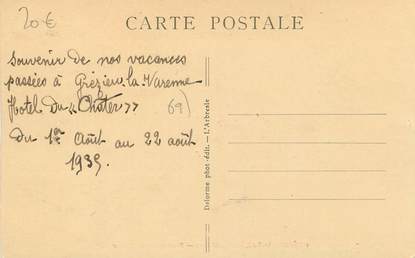 20 €
CARTE POSTALE
Souvenir de nos vacances
passées à Grézieu la Varenne
Hotel Du « Chater » 69)
Du 1er Août au 22 août
1939.
Delorme phot-édit. - L'Arbresle